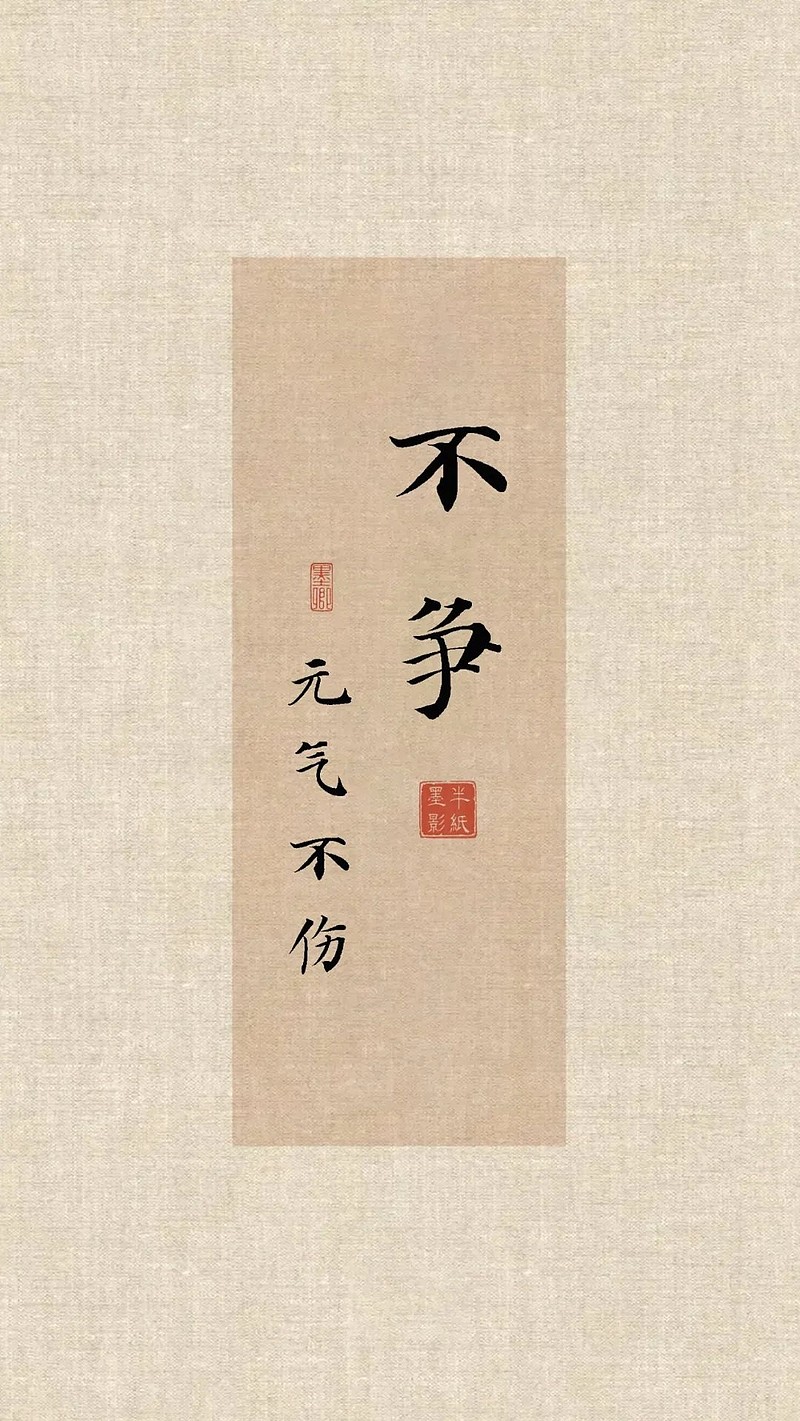 不争
半紙
墨影
墨卿
元气不伤